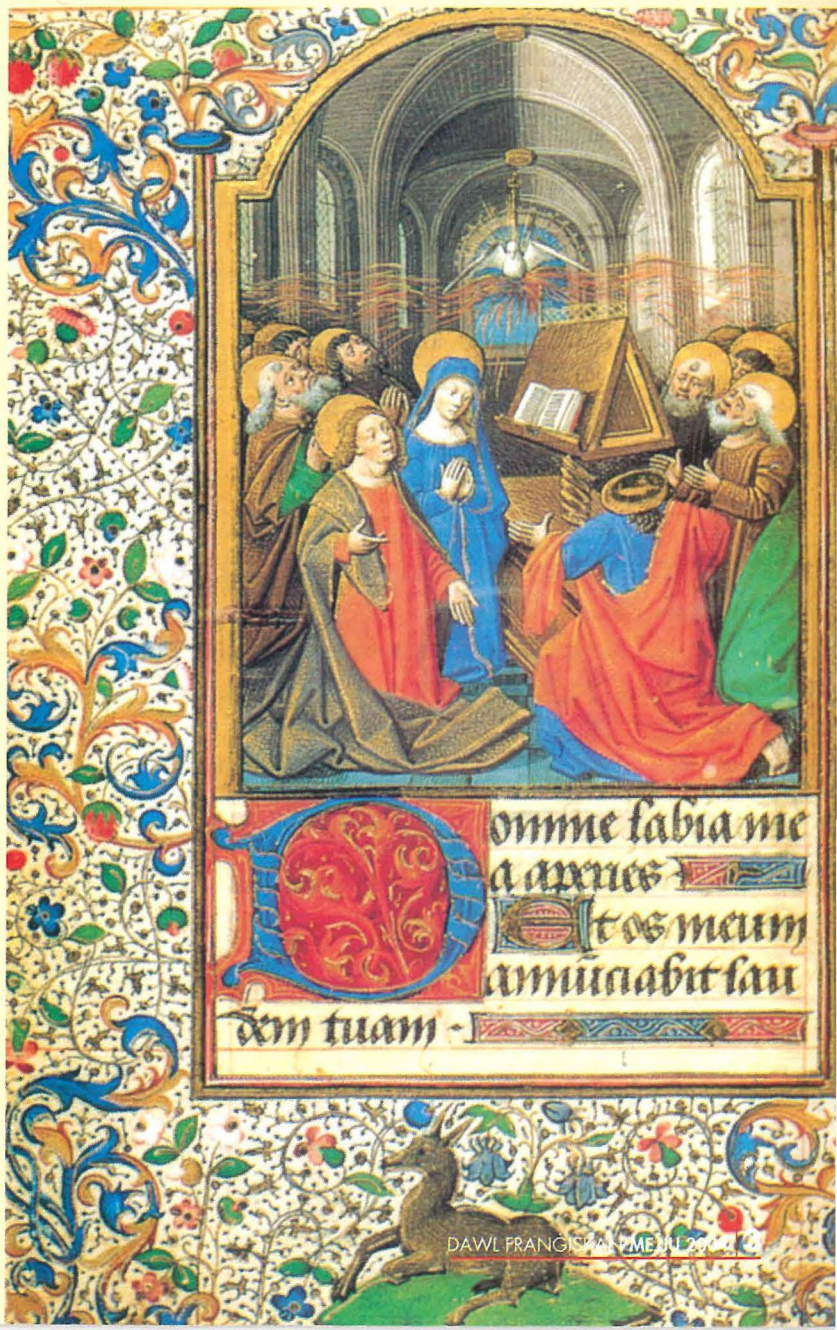 Domine labia me
a aperies
Et os meum
annūciabit lau
dem tuam
DAWL FRANĠISKAN MEJJU